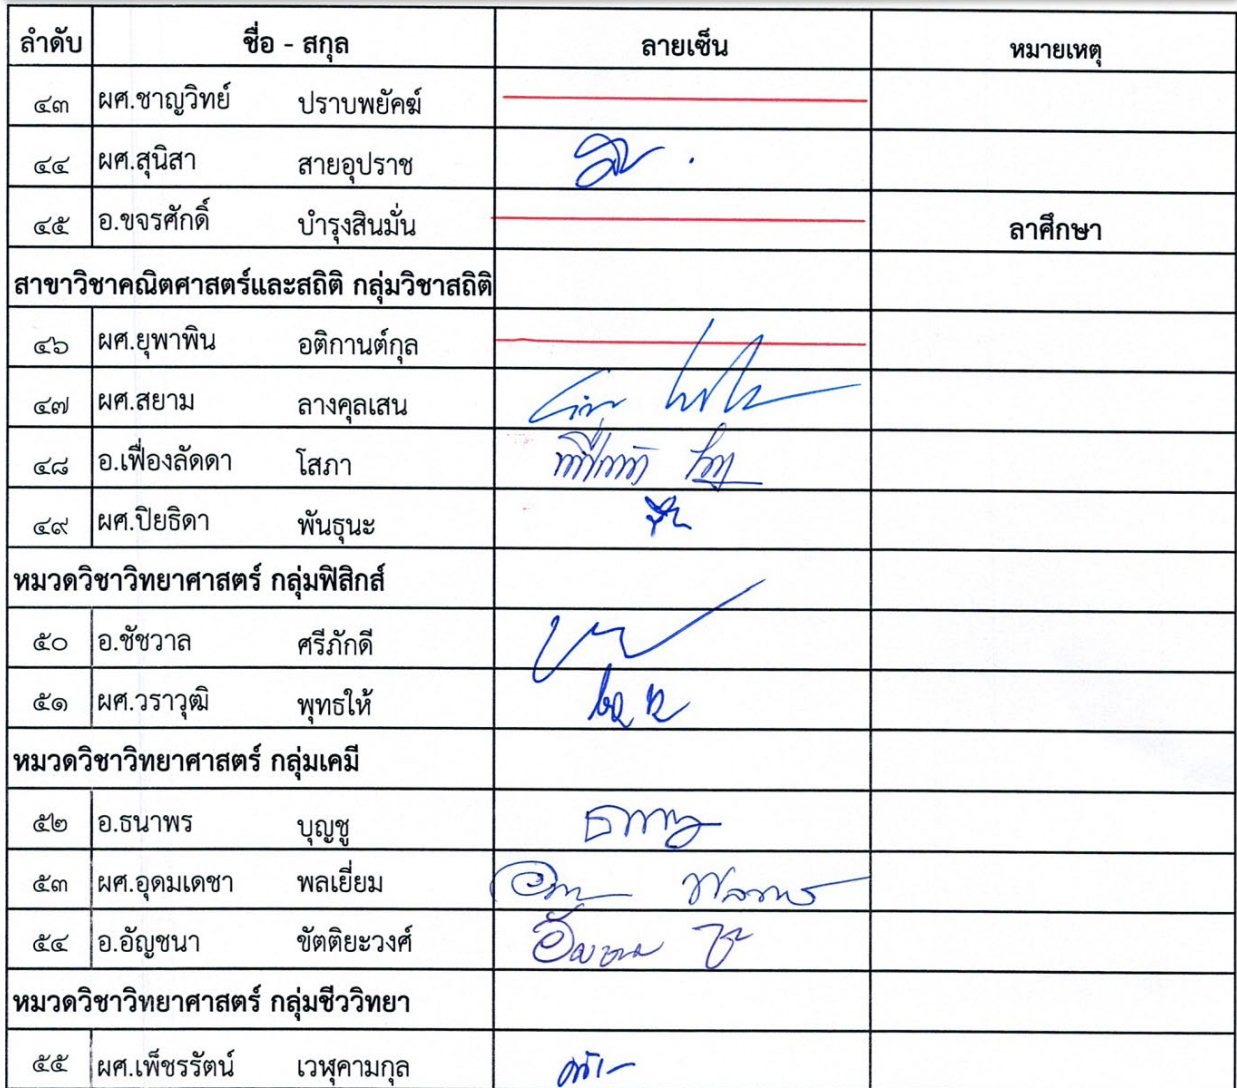 ลำดับ ชื่อ - สกุล ลายเซ็น หมายเหตุ
๔๓ ผศ.ชาญวิทย์ ปราบพยัคฆ์
๔๔ ผศ.สุนิสา สายอุปราช
๔๕ อ.ขจรศักดิ์ บำรุงสินมั่น ลาศึกษา
สาขาวิชาคณิตศาสตร์และสถิติ กลุ่มวิชาสถิติ
๔๖ ผศ.ยุพาพิน อติกานต์กุล
๔๗ ผศ.สยาม ลางคุลเสน
๔๘ อ.เฟื่องลัดดา โสภา
๔๙ ผศ.ปิยธิดา พันธุนะ
หมวดวิชาวิทยาศาสตร์ กลุ่มฟิสิกส์
๕๐ อ.ชัชวาล ศรีภักดี
๕๑ ผศ.วราวุฒิ พุทธให้
หมวดวิชาวิทยาศาสตร์ กลุ่มเคมี
๕๒ อ.ธนาพร บุญชู
๕๓ ผศ.อุดมเดชา พลเยี่ยม
๕๔ อ.อัญชนา ขัตติยะวงศ์
หมวดวิชาวิทยาศาสตร์ กลุ่มชีววิทยา
๕๕ ผศ.เพ็ชรรัตน์ เวฬุคามกุล